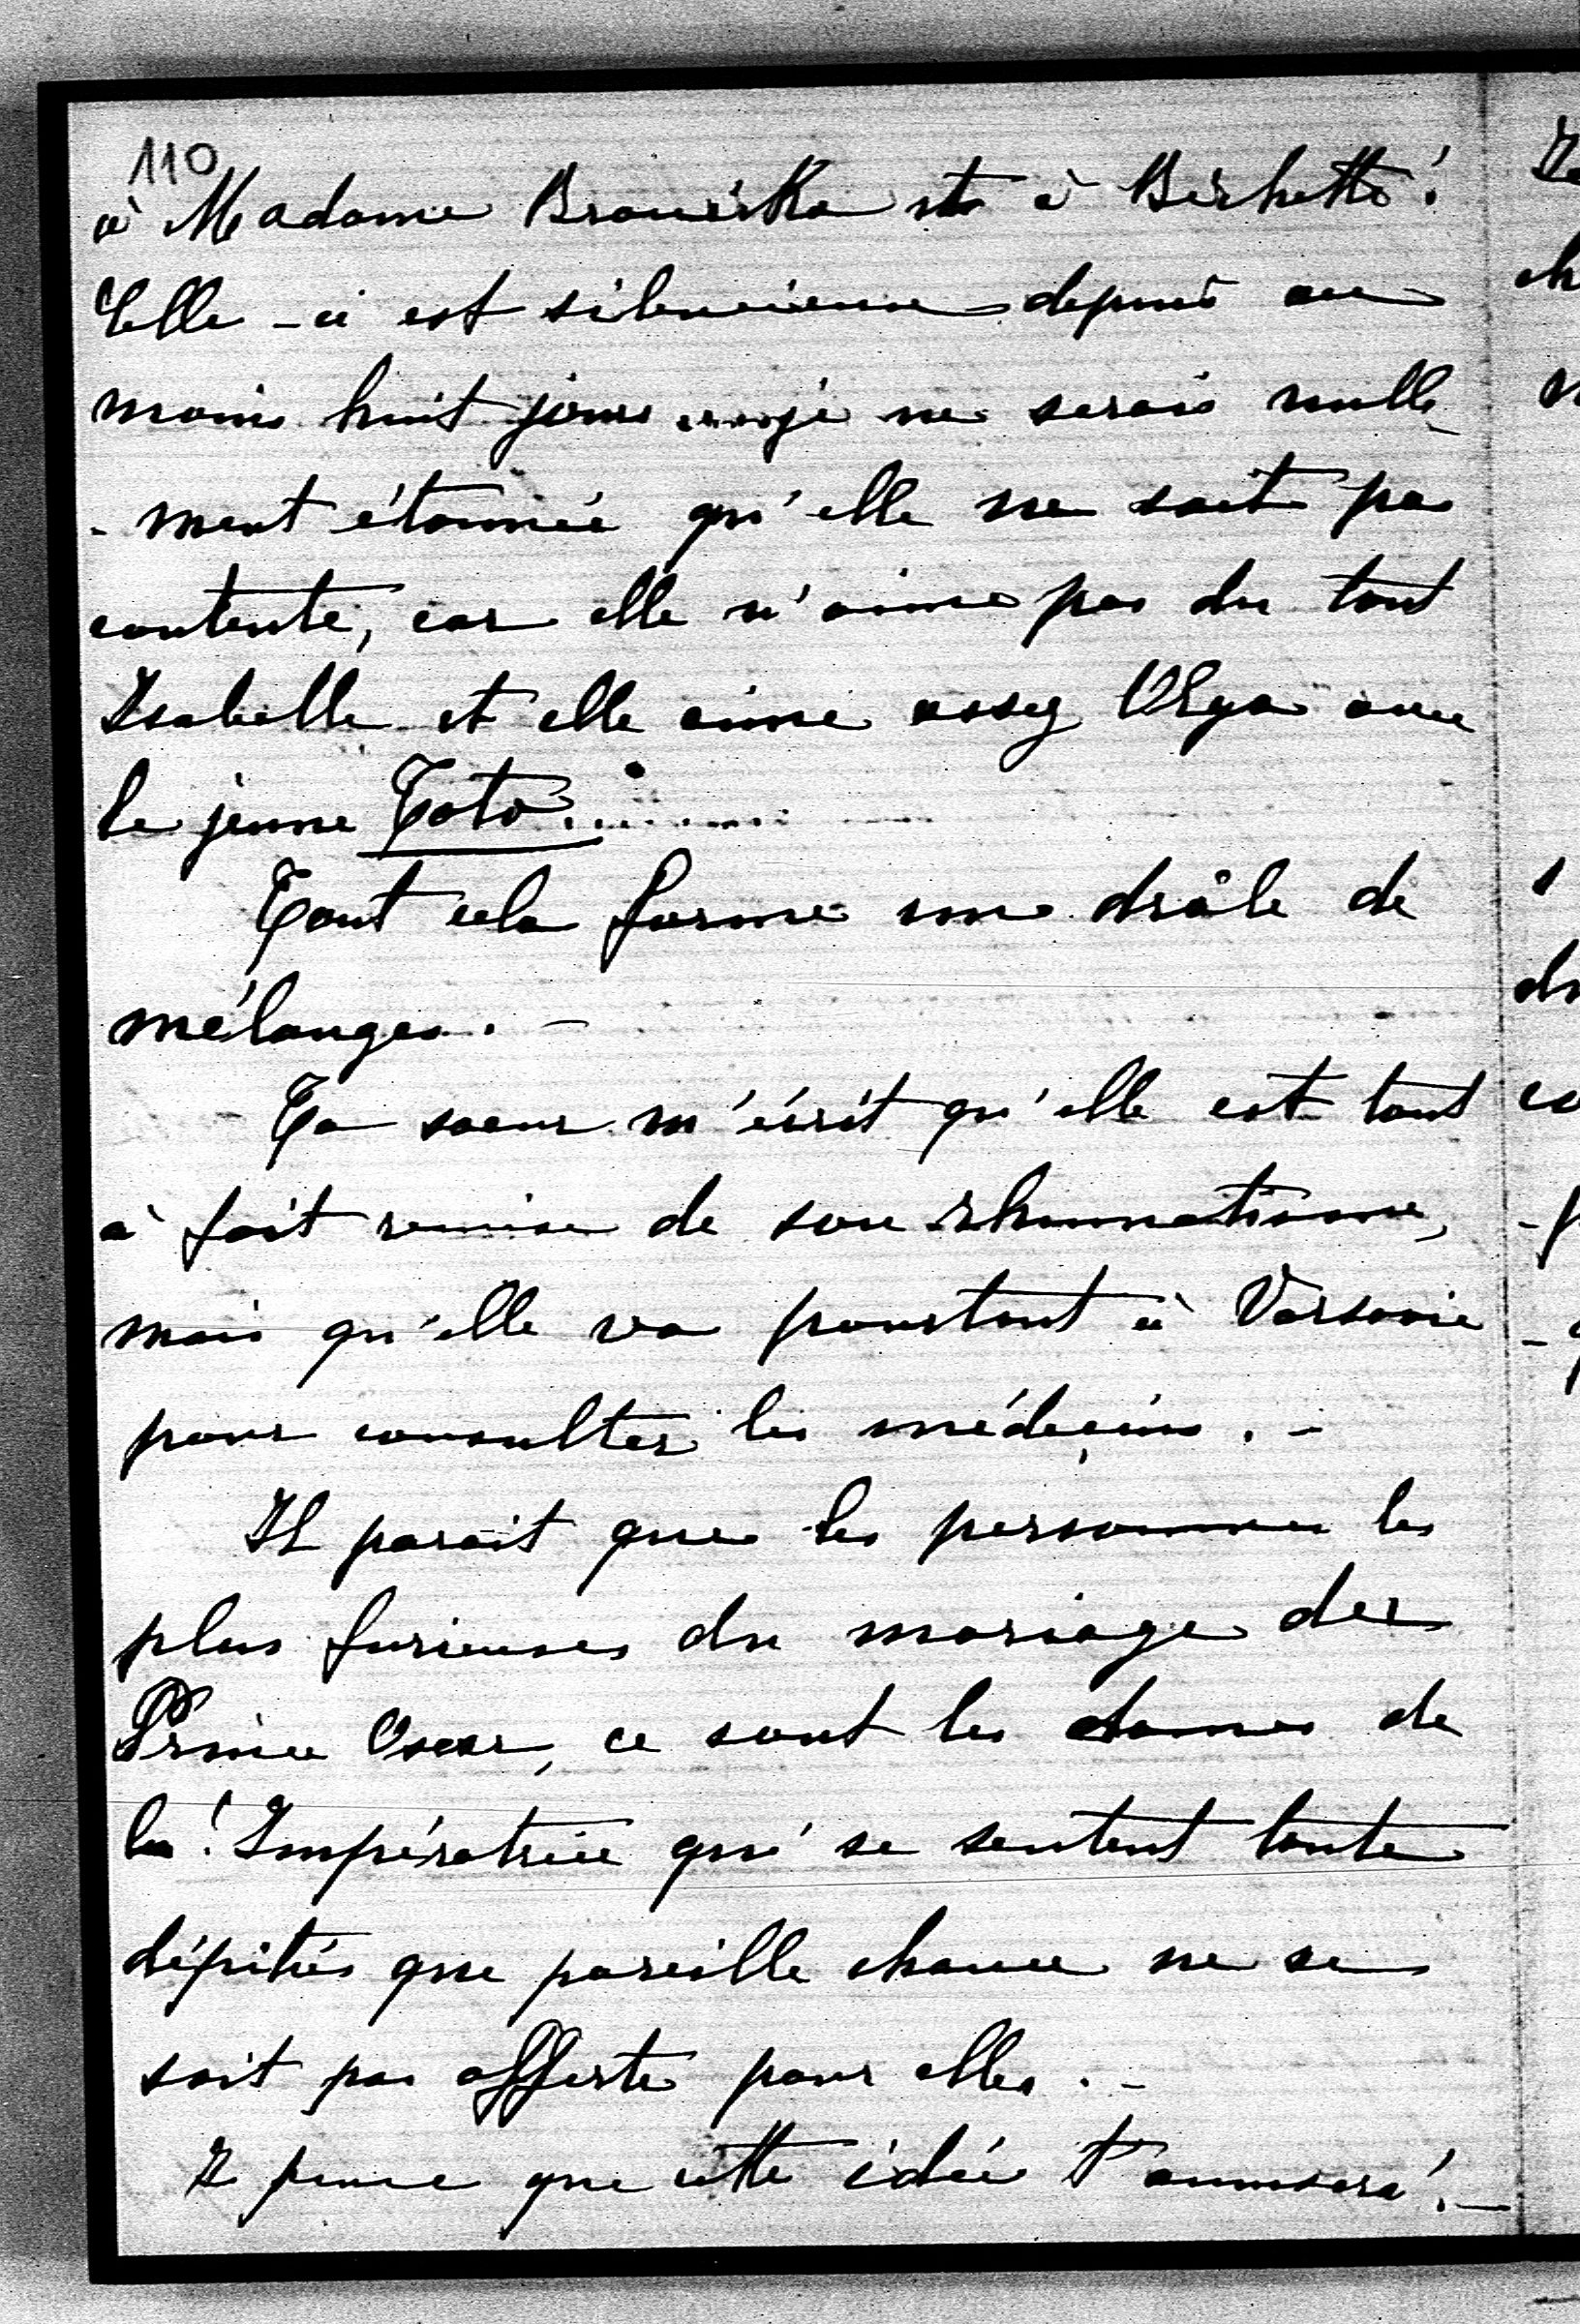 110
à Madame Broniska et à Bichette!
Celle-ci est silencieuse depuis au
moins huit jours je ne serais nulle-
-ment étonnée qu'elle ne soit pas
contente, car elle n'aime pas du tout
Isabelle et elle aime assez Olga avec
le jeune Toto..........
Tout cela forme une drôle de
mélanges. -
Ta soeur m'écrit qu'elle est tout
à fait remise de son rhumatisme,
mais qu'elle va pourtant à Varsovie
pour consulter les médeçins. -
Il parait que les personnes les
plus furieuses du mariage des
Prince Oscar, ce sont les dames de
la! Impératrice qui se sentent toute
dépitées que pareille chance ne se
soit pas offerte pour elles. -
I pense que cette idée t'amusera! -